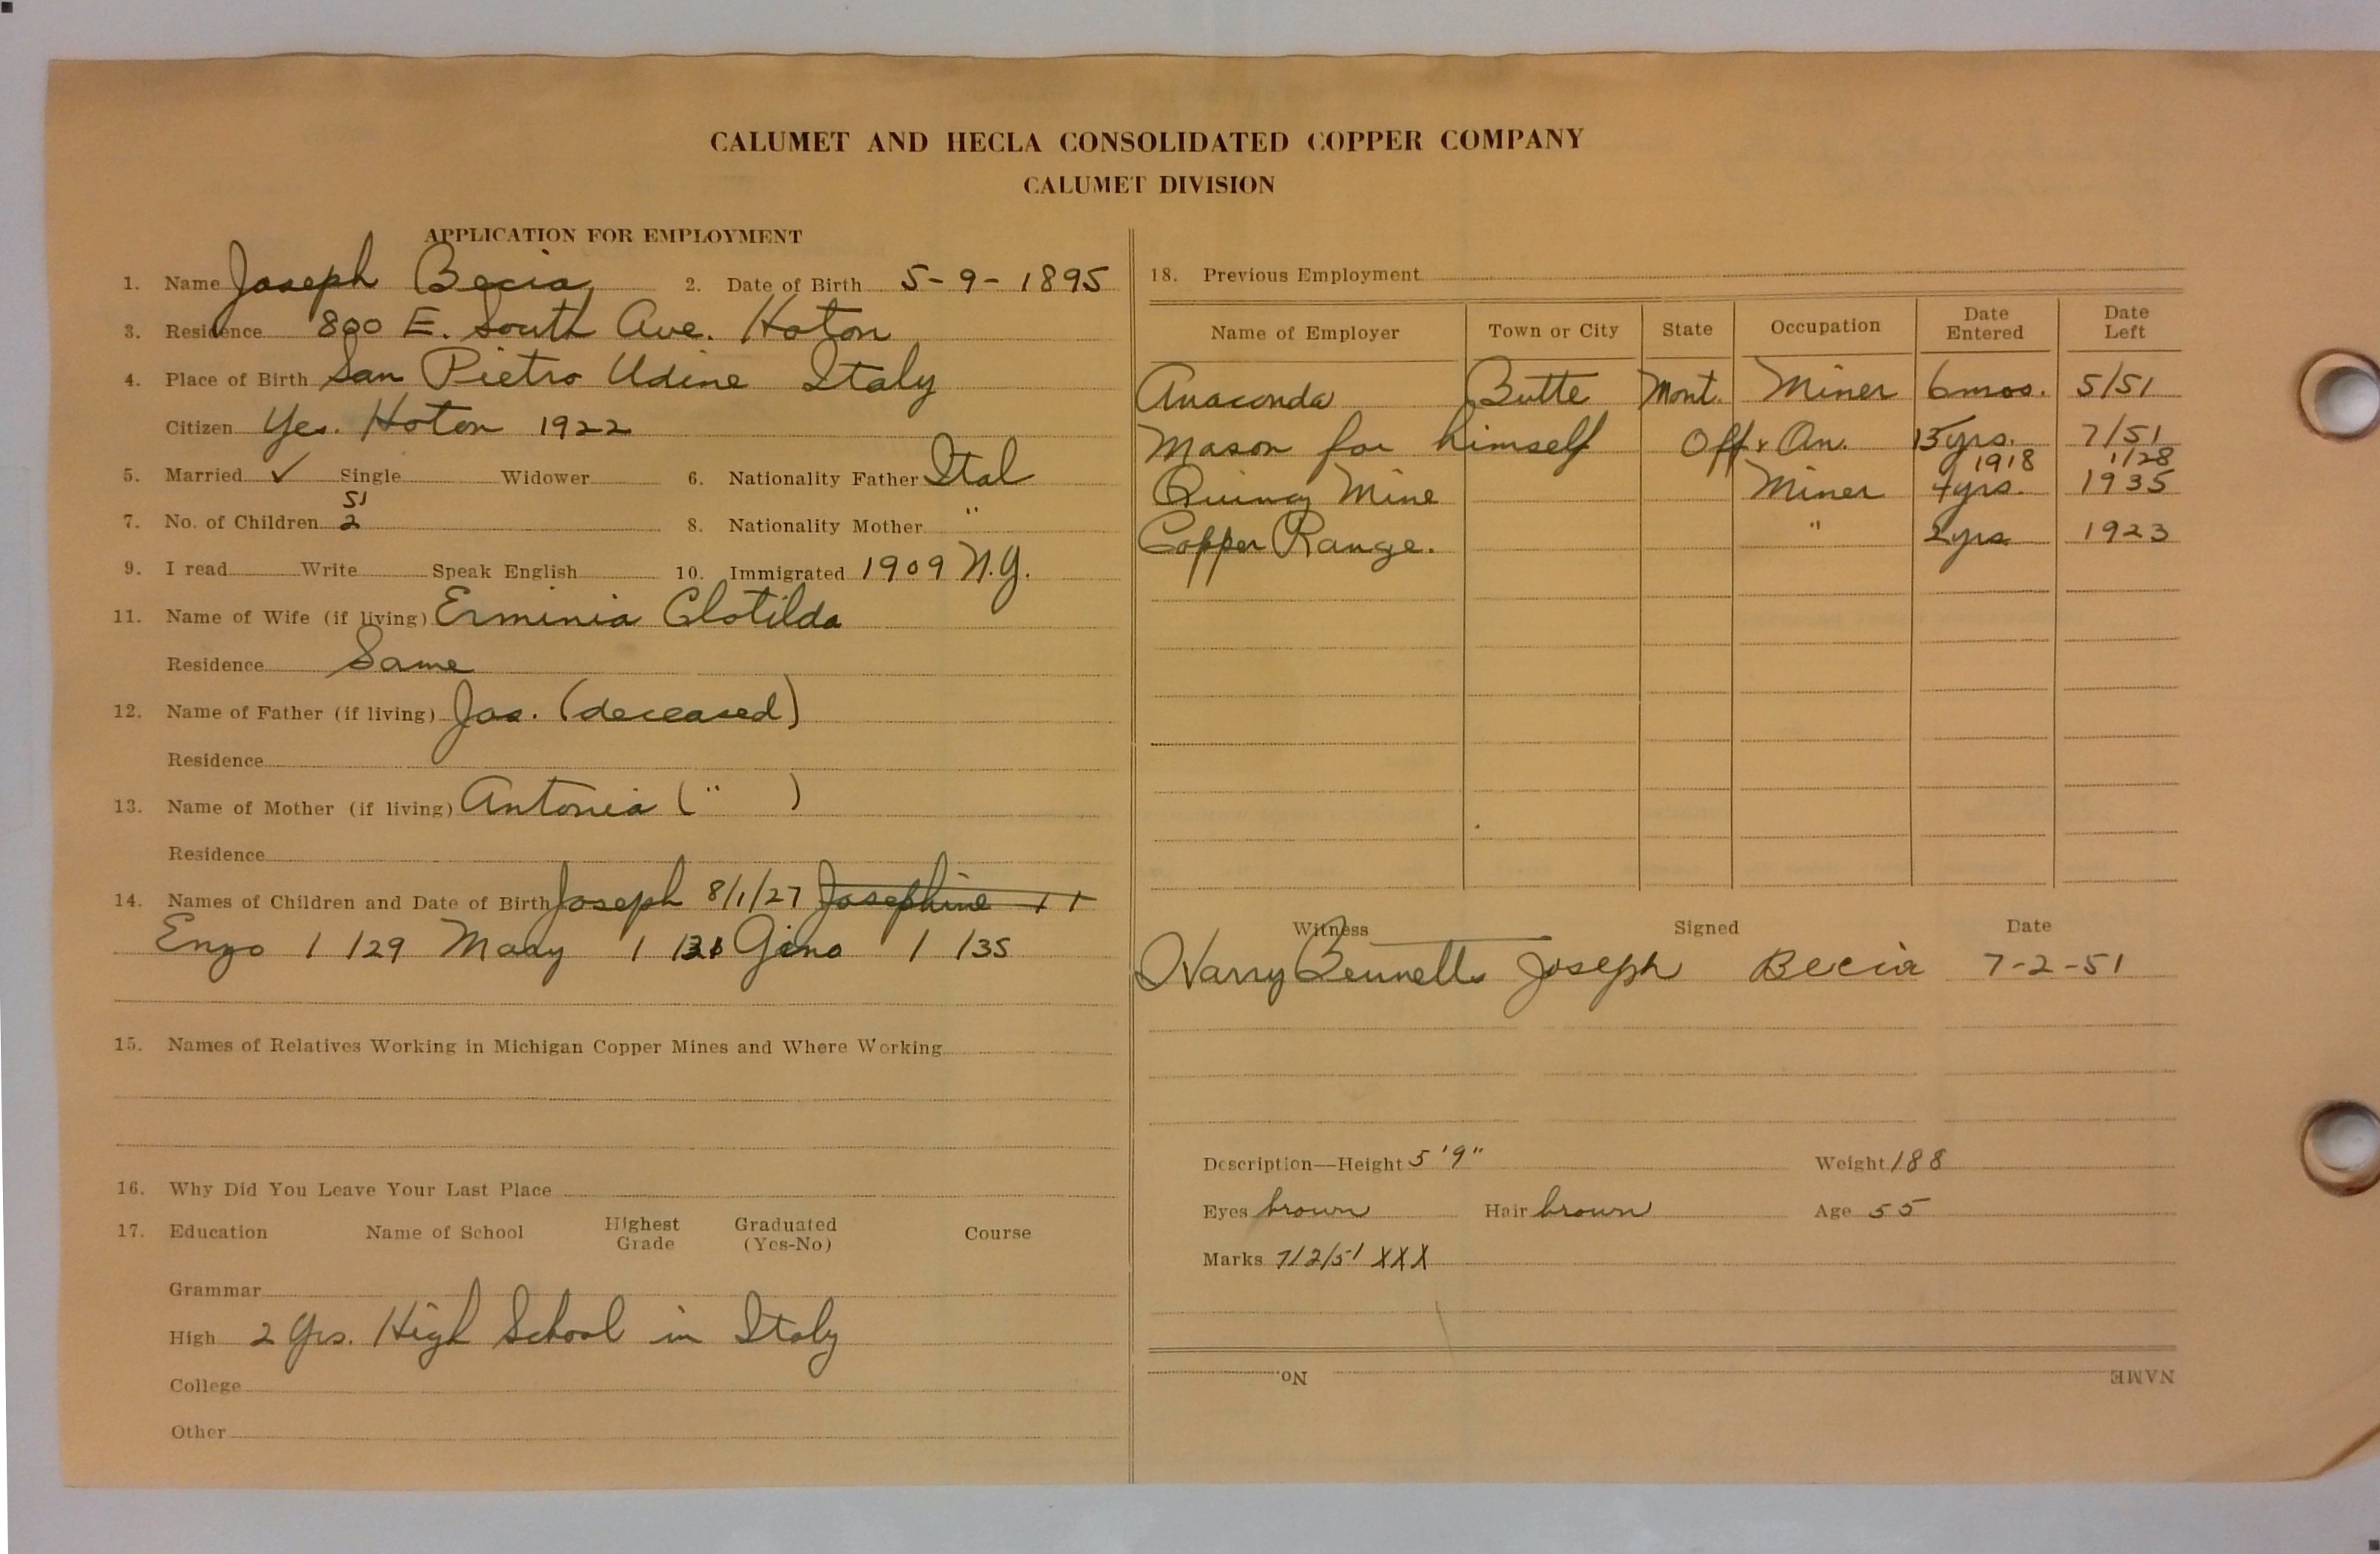 CALUMET AND HECLA CONSOLIDATED COPPER COMPANY
CALUMET DIVISION
APPLICATION FOR EMPLOYMENT
1. Name Joseph Becia 2. Date of Birth 5-9-1895
3. Residence 800 E. South Ave. Hoton
4. Place of Birth San Pietro Udine Italy
Citizen Yes. Hoton 1922
5. Married ✓ Single Widower 6. Nationality Father Ital
51
7. No. of Children 2 8. Nationality Mother "
9. I read Write Speak English 10. Immigrated 1909 N.Y.
11. Name of Wife (if living) Erminia Clotilda
Residence Same
12. Name of Father (if living) Jos. (deceased)
Residence
13. Name of Mother (if living) Antonia ( " )
Residence
14. Names of Children and Date of Birth Joseph 8/1/27 Josephine 1 1
Enzo 1 /29 Mary 1 Gino 1 /35
15. Names of Relatives Working in Michigan Copper Mines and Where Working
16. Why Did You Leave Your Last Place
17. Education Name of School Highest Grade Graduated (Yes-No) Course
Grammar
High 2 Yrs. High School in Italy
College
Other
18. Previous Employment
Name of Employer Town or City State Occupation Date Entered Date Left
Anaconda Butte Mont. Miner 6 mos. 5/51
Mason for himself Off & On. 15 yrs. 7/51
1918 1/28
Quincy Mine Miner yrs. 1935
Copper Range. " 2 yrs 1923
Witness Signed Date
Harry Bennetts Joseph Becia 7-2-51
Description—Height 5'9" Weight 188
Eyes brown Hair brown Age 55
Marks 7/2/51 XXX
No. NAME